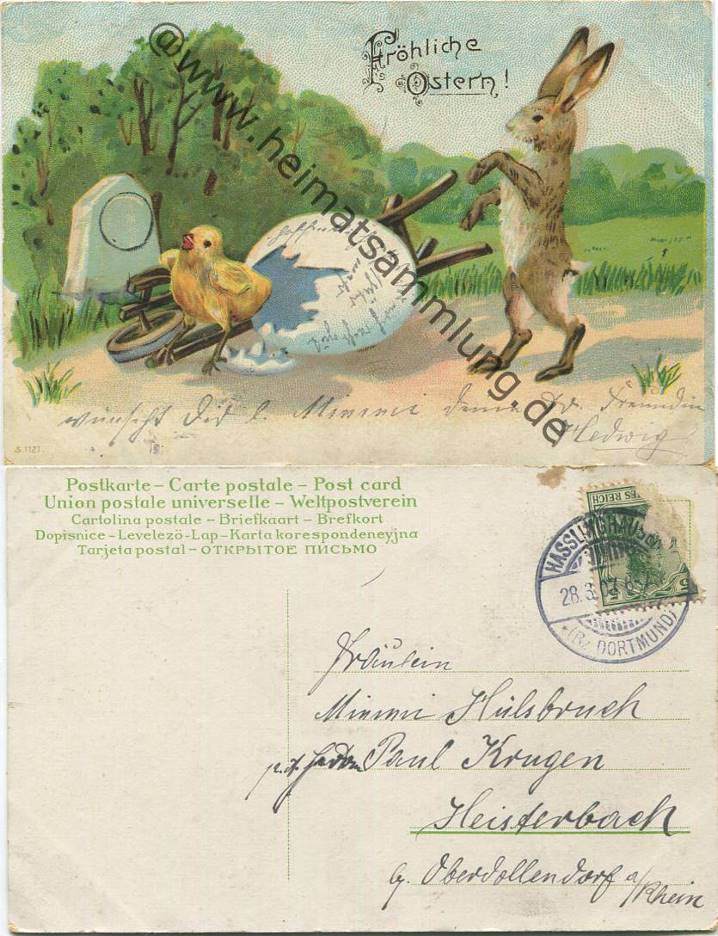 Fröhliche
Ostern!
@www.heimatsammlung.de
wünscht Dir l. Mimmi deine Freundin
Hedwig
S.1121.
Postkarte – Carte postale – Post card
Union postale universelle – Weltpostverein
Cartolina postale – Briefkaart – Brefkort
Dopisnice – Levelező-Lap – Karta korespondencyjna
Tarjeta postal – ОТКРЫТОЕ ПИСЬМО
ES REICH
HASSLINGHAUSEN
28.3.07. 8-
(Bz. DORTMUND)
5
Fräulein
Mimmi Hülsbruch
Paul Krugen
Heisterbach
b/ Oberdollendorf a/Rhein